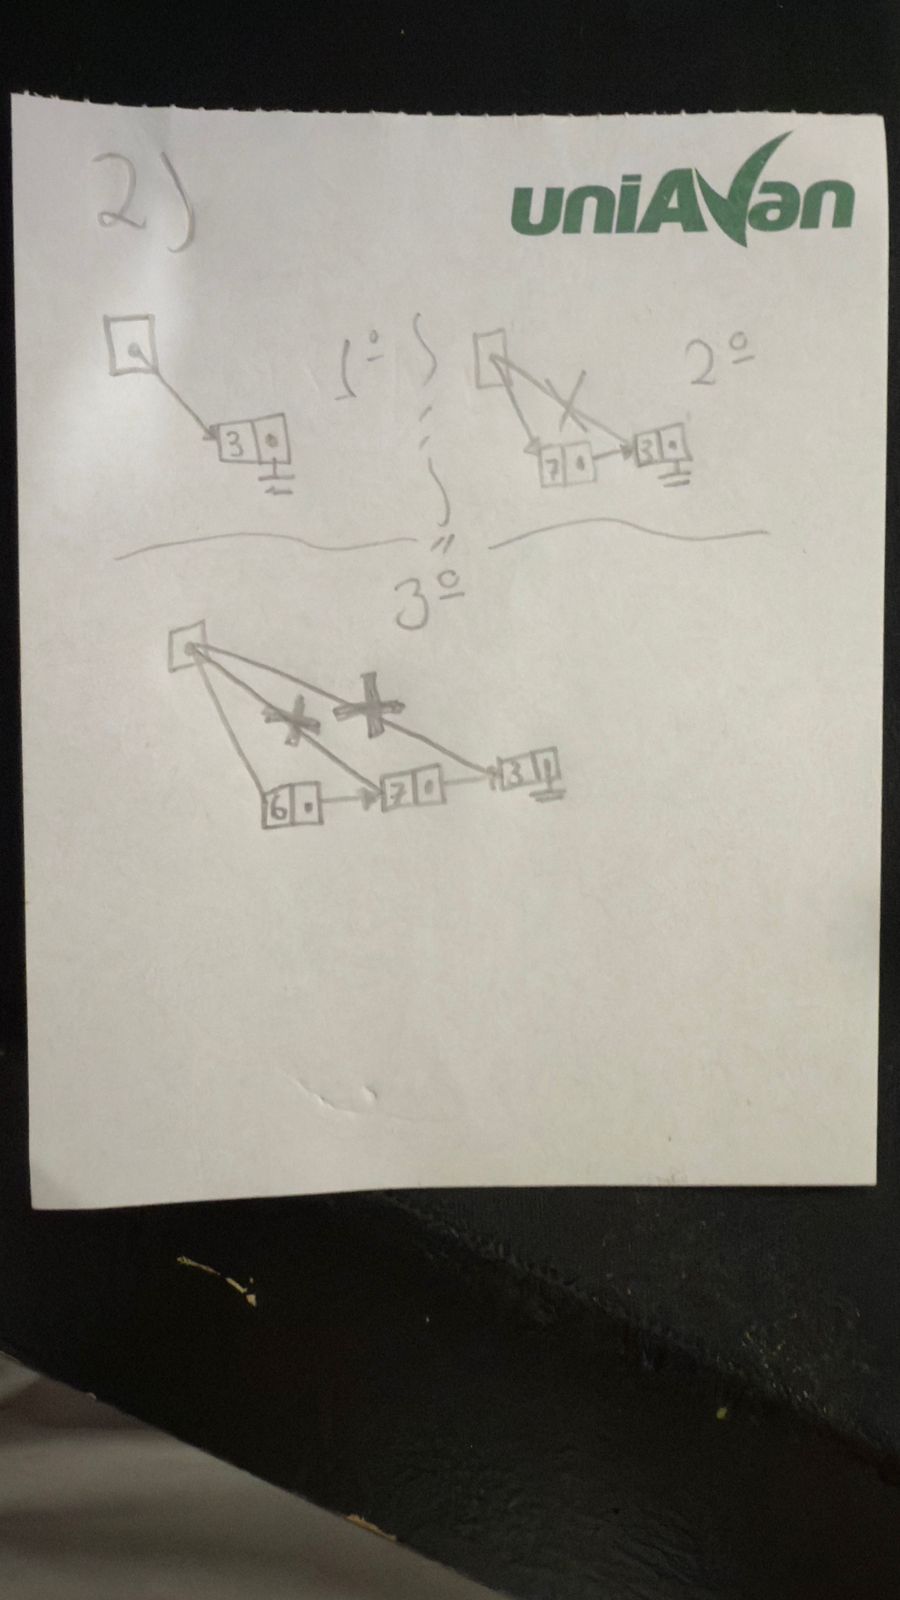 2)
uniAvan
1º
3
2º
7 3
3º
6 7 3